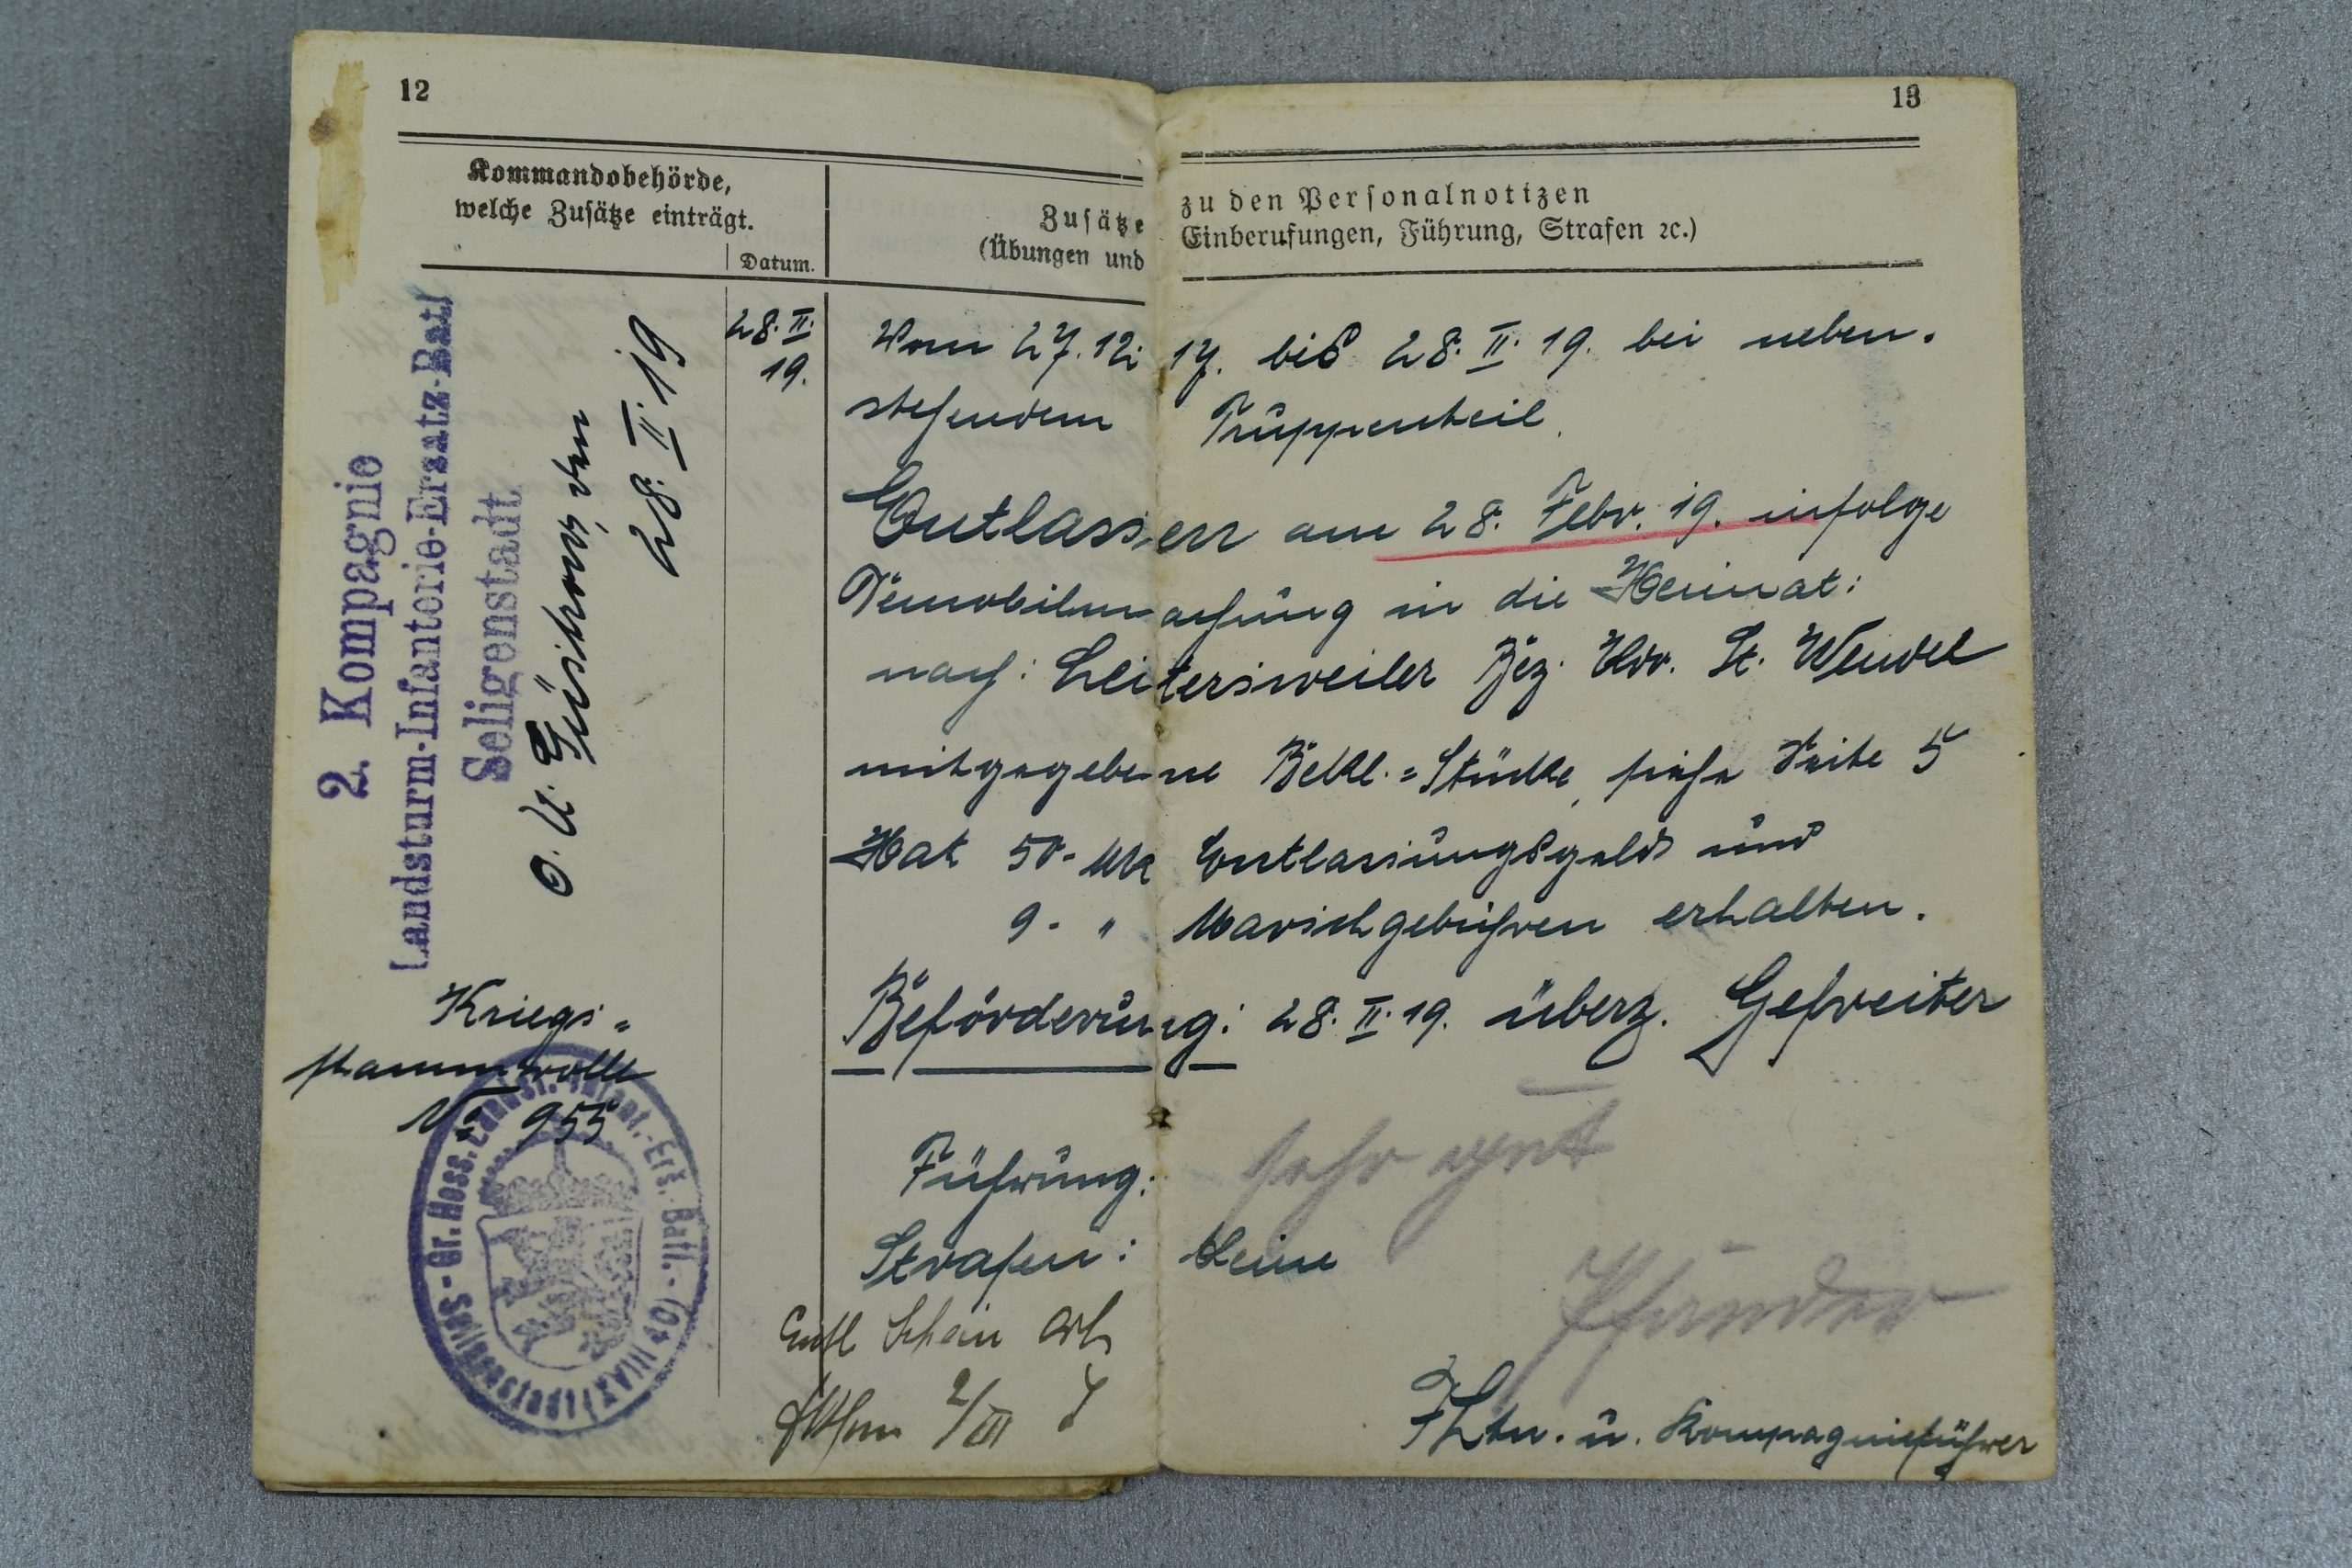 12
13
Kommandobehörde,
welche Zusätze einträgt.
Datum.
Zusätze zu den Personalnotizen
(Übungen und Einberufungen, Führung, Strafen ꝛc.)
2. Kompagnie
Landsturm-Infanterie-Ersatz-Batl
Seligenstadt
O. U. Güstrow, den
28. II. 19
Kriegs=
stammrolle
No 955
Seligenstadt (XVIII/40) - Gr. Hess. Landst. Infant.-Ers.-Batl.-
28. II.
19.
Vom 27. 12. 17. bis 28. II. 19. bei neben.
stehendem Truppenteil.
Entlassen am 28. Febr. 19. infolge
Demobilmachung in die Heimat:
nach: Leitersweiler Bez. Kdo. St. Wendel
mitgegebene Bekl.=Stücke, siehe Seite 5
Hat 50.- Mk Entlassungsgeld und
9.- " Marschgebühren erhalten.
Beförderung: 28. II. 19. überz. Gefreiter
Führung: sehr gut
Strafen: keine
Entl Schein
2/III
Pfander
Ltn. u. Kompagnieführer